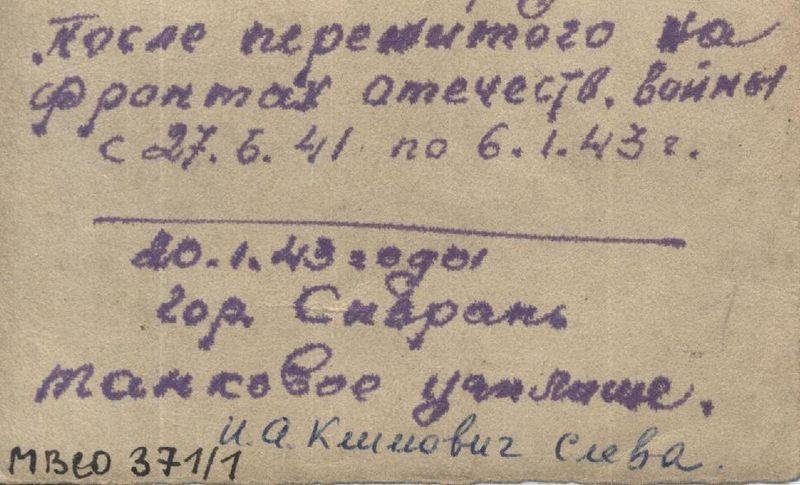 После пережитого на
фронтах отечеств. войны
с 27.6.41 по 6.1.43 г.
20.1.43 годы
гор. Сызрань
танковое училище.
И.А. Климович слева.
МВСО 371/1